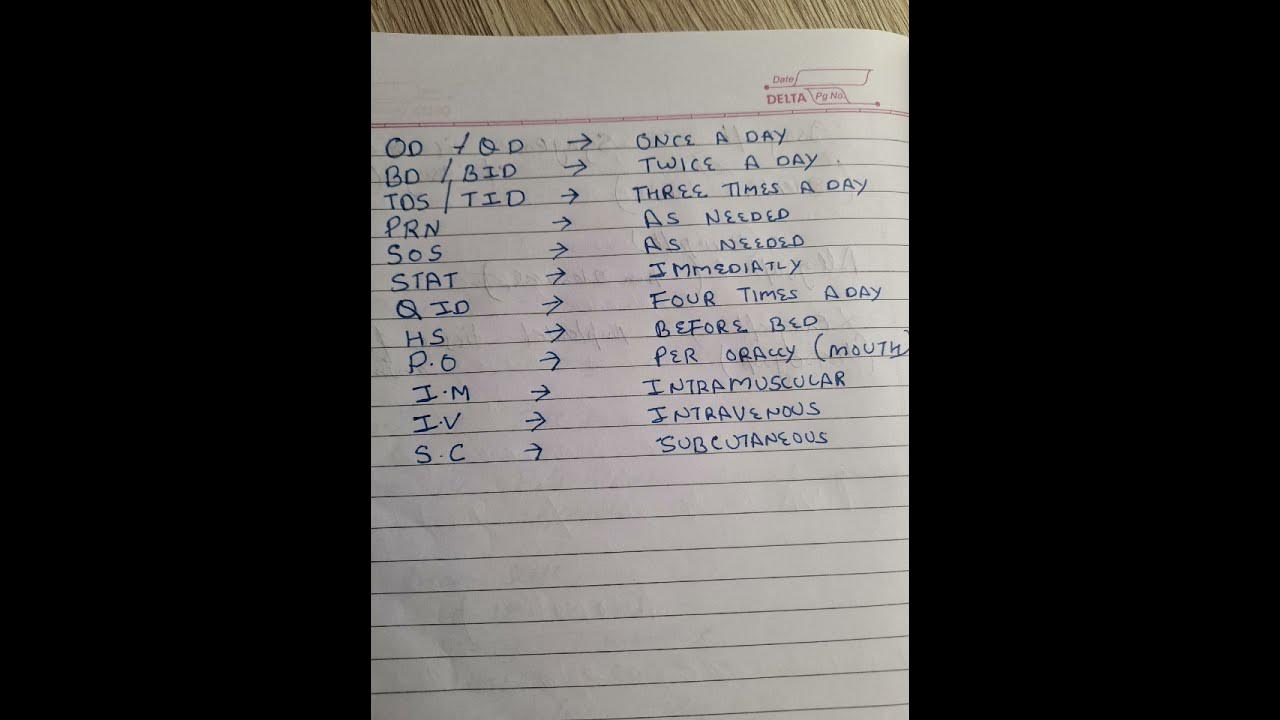 Date
DELTA Pg No.
OD / QD → ONCE A DAY
BD / BID → TWICE A DAY.
TDS / TID → THREE TIMES A DAY
PRN → AS NEEDED
SOS → AS NEEDED
STAT → IMMEDIATLY
QID → FOUR TIMES A DAY
HS → BEFORE BED
P.O → PER ORALLY (MOUTH)
I.M → INTRAMUSCULAR
I.V → INTRAVENOUS
S.C → SUBCUTANEOUS